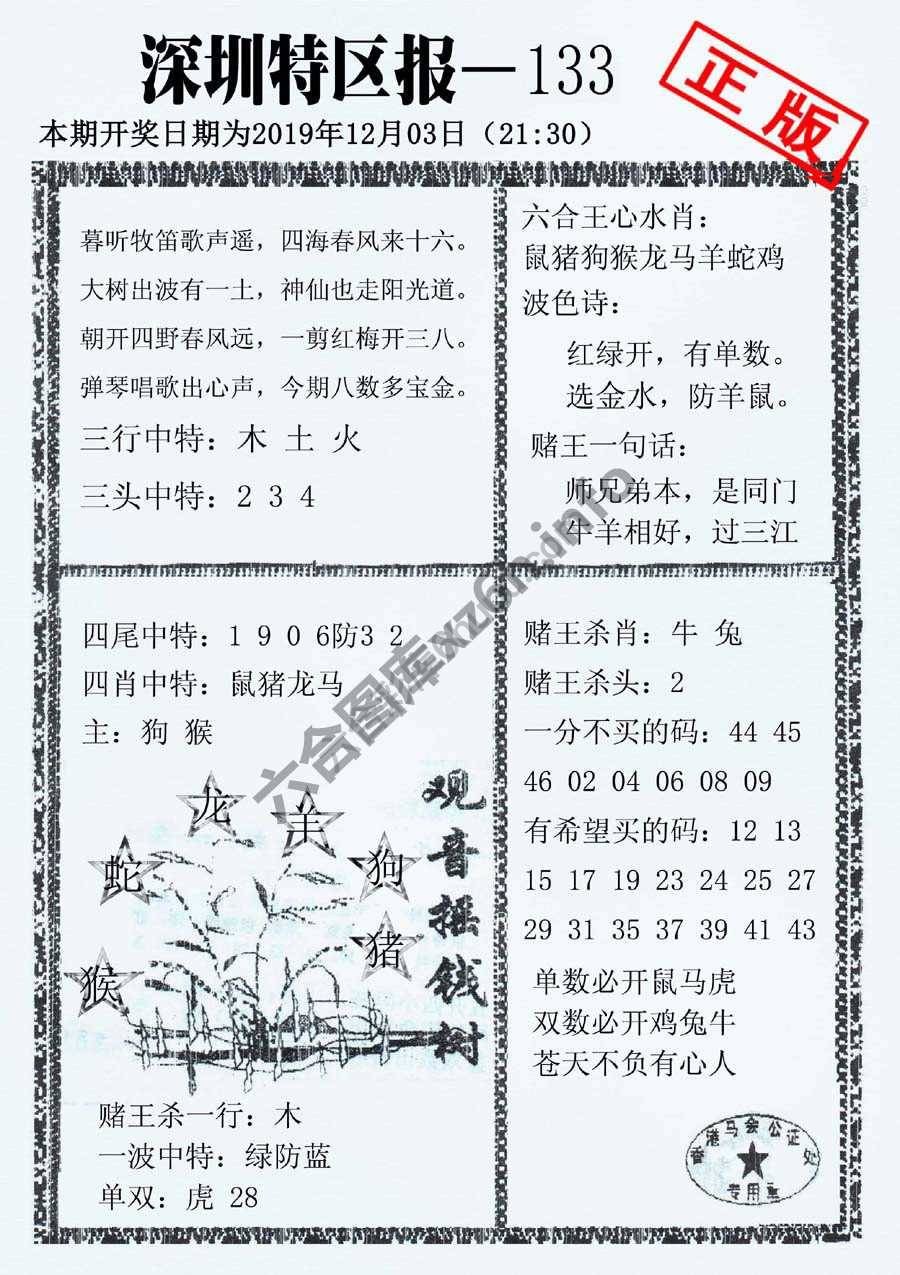 深圳特区报—133
正版
本期开奖日期为2019年12月03日（21:30）
暮听牧笛歌声遥，四海春风来十六。
大树出波有一土，神仙也走阳光道。
朝开四野春风远，一剪红梅开三八。
弹琴唱歌出心声，今期八数多宝金。
三行中特：木 土 火
三头中特：2 3 4
六合王心水肖：
鼠猪狗猴龙马羊蛇鸡
波色诗：
红绿开，有单数。
选金水，防羊鼠。
赌王一句话：
师兄弟本，是同门
牛羊相好，过三江
四尾中特：1 9 0 6防3 2
四肖中特：鼠猪龙马
主：狗 猴
龙
羊
蛇
狗
猪
猴
观音摇钱树
赌王杀一行：木
一波中特：绿防蓝
单双：虎 28
赌王杀肖：牛 兔
赌王杀头：2
一分不买的码：44 45
46 02 04 06 08 09
有希望买的码：12 13
15 17 19 23 24 25 27
29 31 35 37 39 41 43
单数必开鼠马虎
双数必开鸡兔牛
苍天不负有心人
香港马会公证处
专用章
六合图库xz6h.info